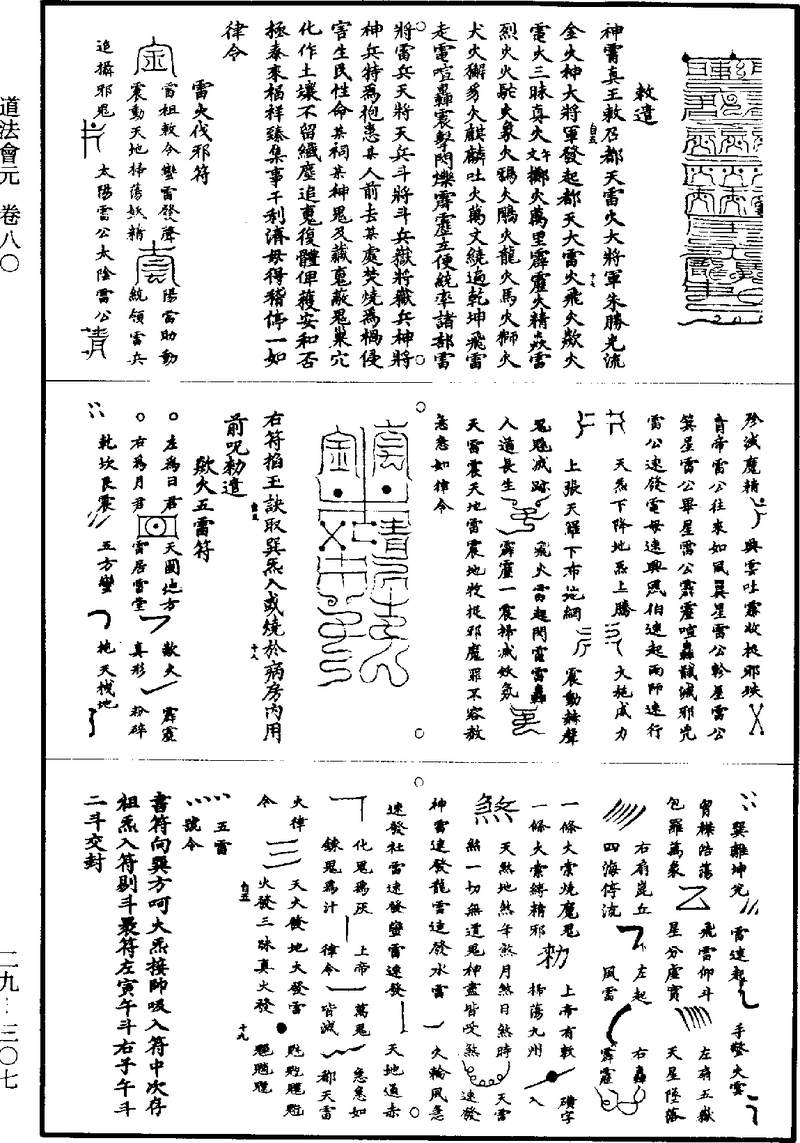 敕遣
神霄真王敕召都天雷火大將軍朱勝光流
金火神大將軍發起都天大雷火飛火歘火
電火三昧真火擲火萬里霹靂火精焱雷
烈火火駝火象火鴉火鵰火龍火馬火獅火
犬火獬豸火麒麟吐火萬丈繞遍乾坤飛雷
走電喧轟震擊閃爍霹靂立便統率諸部雷
將雷兵天將天兵斗將斗兵嶽將嶽兵神將
神兵特為抱患某人前去某處焚燒為禍侵
害生民性命某祠某神鬼及藏䰟蔽鬼巢穴
化作土壤不留纖塵追䰟復體俾穫安和否
極泰來福祥臻集事干利濟毋得稽停一如
律令
雷火伐邪符
雷祖敕令蠻雷發聲 陽雷助動
震動天地掃蕩妖精 統領雷兵
追攝邪鬼 太陽雷公太陰雷公
殄滅魔精 興雲吐霧收捉邪殃
青帝雷公往來如風翼星雷公軫星雷公
箕星雷公畢星雷公霹靂喧轟誅滅邪兇
雷公速發電母速興風伯速起雨師速行
天炁下降地炁上騰 大施威力
上張天羅下布地網 震動赫聲
鬼魅滅跡 飛火雷起閃電雷轟
人道長生 霹靂一震掃滅妖氛
天雷震天地雷震地收捉邪魔罪不容赦
急急如律令
右符掐王訣取巽炁入或燒於病房內用
前呪勅遣
歘火五雷符
左為日君 天圓地方 歘火 霹靂
右為月君 雷居雷堂 真形 粉碎
乾坎艮震 五方蠻 地 天棧地
巽離坤兌 雷速起 手擎火雲
胷襟浩蕩 飛雷仰斗 左肩五嶽
包羅萬象 星分虛實 天星墜落
右肩崑丘 左起 右轟
四海傳流 風雷 霹靂
一條大索燒魔鬼 上帝有敕
一條火索縛精邪 掃蕩九州 入
天煞地煞年煞月煞日煞時 天雷
煞一切無道鬼神盡皆受煞 速發
神雷速發龍雷速發水雷 火輪風急
速發社雷速發蠻雷速發 天地通赤
化鬼為灰 上帝 萬鬼 急急如
鍊鬼為汁 律令 皆滅 都天雷
火律 天火發地火發雷
令 火發三昧真火發
五雷
號令
書符向巽方呵大炁接師吸入符中次存
祖炁入符剔斗罡符左寅午斗右子午斗
二斗交封
道法會元 卷八〇
二九…三〇七